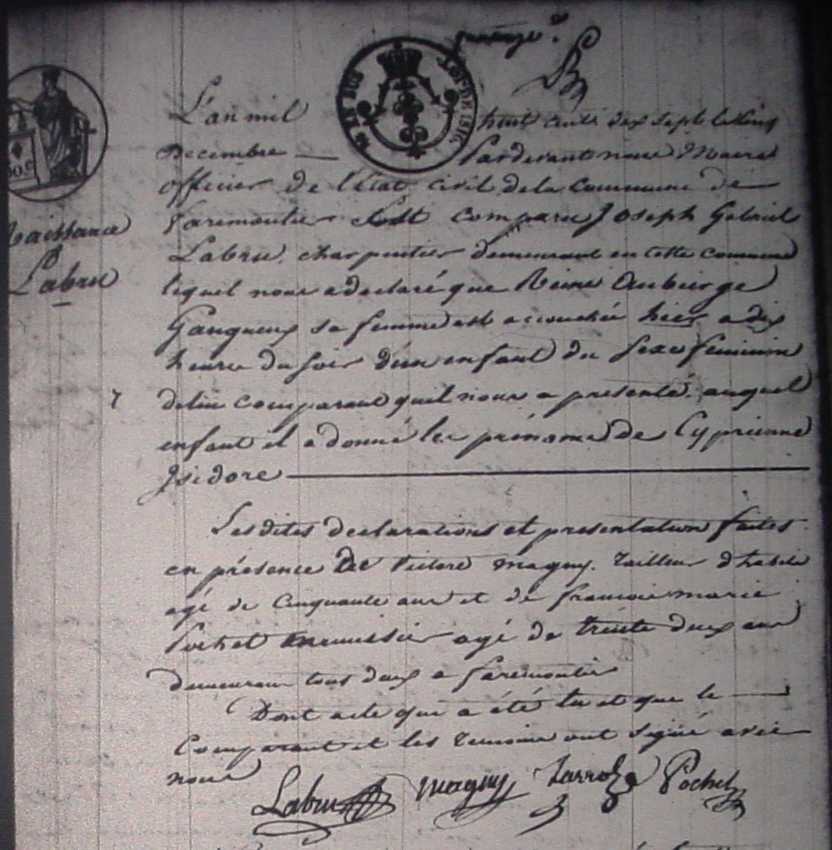 L'an mil huit cent dix sept le cinq
Decembre — Pardevant nous Maire
officier de l'état civil de la Commune de
faremoutier Est comparu Joseph Gabriel
Labru, charpentier demeurant en cette commune
lequel nous a declaré que Reine Aubierge
Gangneux sa femme est accouchée hier a dix
heure du soir d'un enfant du sexe feminin
de lui comparant qu'il nous a presenté, auquel
enfant il a donné les prénoms de Cyprienne
Isidore
Naissance
Labru
7
Lesdites declarations et presentation faites
en présence de Victore Magny, tailleur d'habits
agé de Cinquante ans et de francois marie
Pochet menuisier agé de trente deux ans
demeurans tous deux a faremoutier
Dont acte qui a été lu et que le
Comparant et les temoins ont signé avec
nous
Labru Magny Pochet